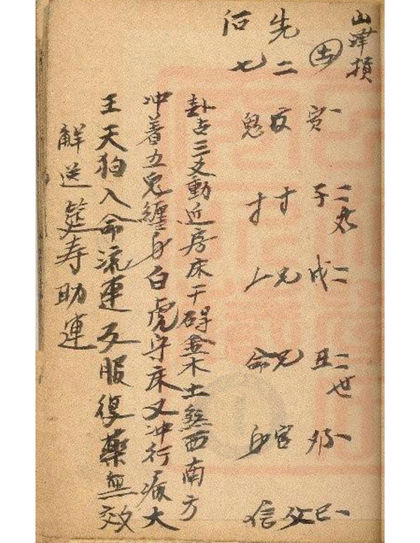 山澤損
土 寅 子 戌 二 丑 二世 卯 巳
先二 父 才 兄 兄 官 父
后七 鬼 才 人 命 身 信
卦占三爻動近房床干碍木土煞西南方
冲着五鬼纏身白虎守床又冲行病大
王天狗入命流連服藥無效
解送莚寿助運